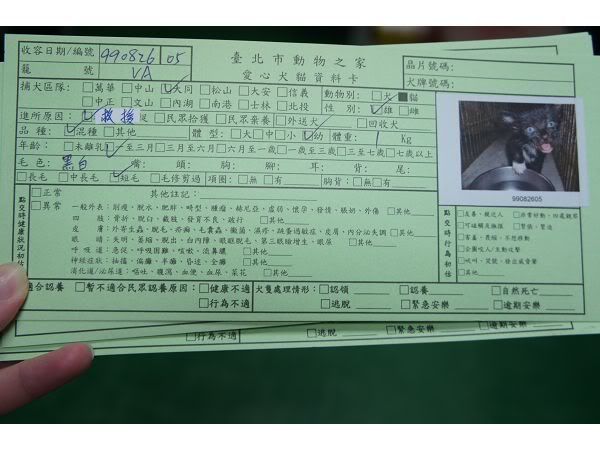 收容日期/編號 990826 05
臺北市動物之家
晶片號碼:
籠號 VA
愛心犬貓資料卡
犬牌號碼:
捕犬區隊: □萬華 □中山 ☑大同 □松山 □大安 □信義 動物別: □犬 ■貓
□中正 □文山 □內湖 □南港 □士林 □北投 性別: ☑雄 □雌
進所原因: ☑救援 □民眾拾獲 □民眾棄養 □外送犬 □回收犬
品種: ☑混種 □其他 體型: □大 □中 □小 ☑幼 體重: 1 Kg
年齡: □未離乳 ☑一至三月 □三月至六月 □六月至一歲 □一歲至三歲 □三至七歲 □七歲以上
毛色: 黑白 嘴: 頭: 胸: 腳: 耳: 背: 尾:
□長毛 □中長毛 ☑短毛 □毛修剪過 項圈: □無 □有 胸背: □無 □有
99082605
點交時健康狀況初估
□正常 其他註記:
□異常 一般外表: 削瘦、脫水、肥胖、畸型、腫瘤、赫尼亞、虛弱、懷孕、發情、脹奶、外傷 □其他
四肢: 骨折、脫臼、截肢、發育不良、跛行 □其他
皮膚: 外寄生蟲、脫毛、疥癬、毛囊蟲、黴菌、濕疹、跳蚤過敏症、皮屑、內分泌失調 □其他
眼睛: 失明、萎縮、脫出、白內障、眼瞼脫毛、第三眼瞼增生、眼屎 □其他
呼吸道: 急促、呼吸困難、咳嗽、流鼻膿 □其他
神經症狀: 抽搐、偏癱、半癱、昏迷、全癱 □其他
消化道/泌尿道: 嘔吐、腹瀉、血便、血尿、菜花 □其他
點交時行為初估
□友善、親近人 □非常好動、四處觀察
□可碰觸及擁抱 □緊張、緊迫
□害羞、畏縮、不想移動
□企圖咬人/主動攻擊
□吠叫、哭號、發出威脅聲
□其他
適合認養 □暫不適合民眾認養原因: □健康不適 犬隻處理情形: □認領 □認養 □自然死亡
□行為不適 □逃脫 □緊急安樂 □逾期安樂
□行為不適 □逃脫 □緊急安樂 □逾期安樂